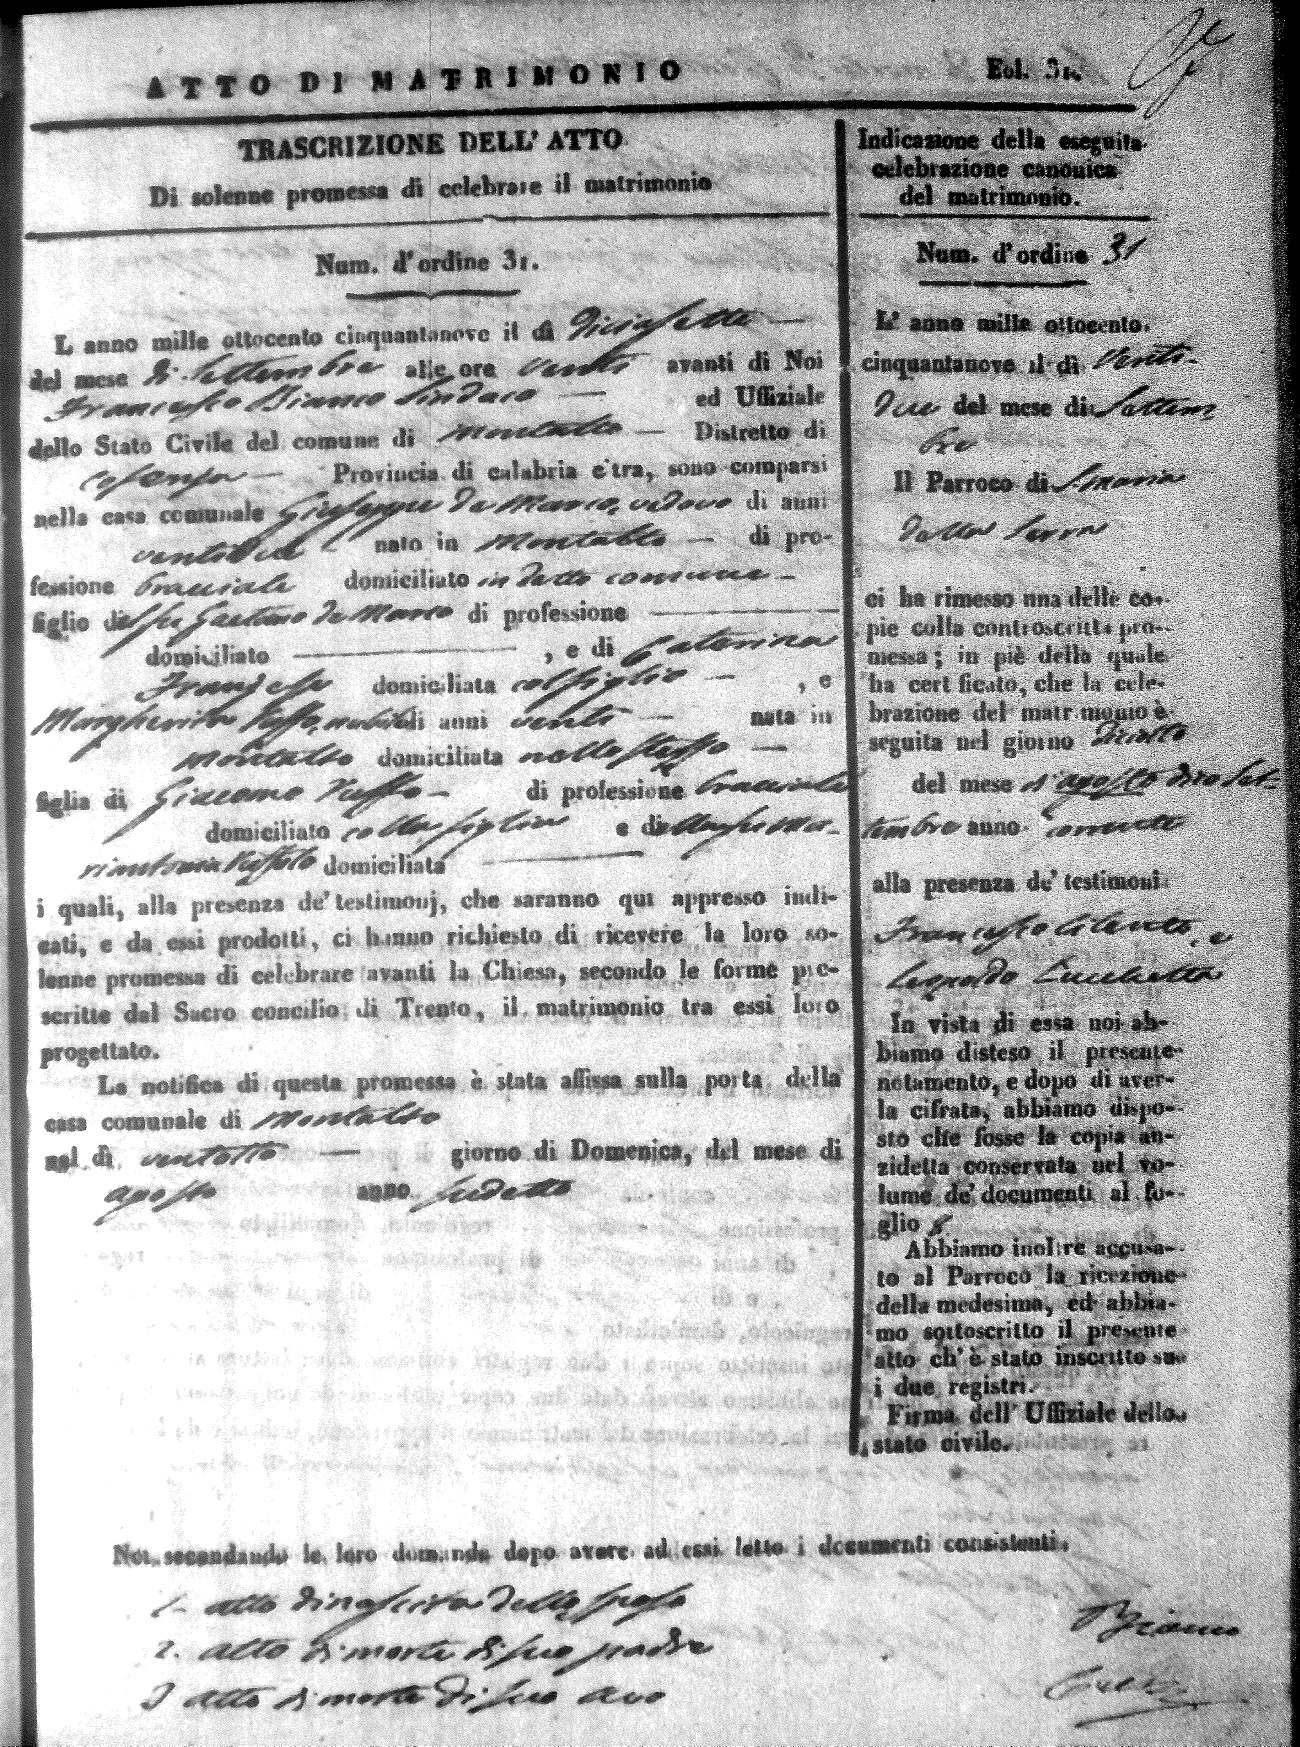 ATTO DI MATRIMONIO
Fol. 31.
TRASCRIZIONE DELL' ATTO
Di solenne promessa di celebrare il matrimonio
Num. d'ordine 31.
L anno mille ottocento cinquantanove il dì diciasette
del mese di Settembre alle ore venti avanti di Noi
Francesco Bianco Sindaco ed Uffiziale
dello Stato Civile del comune di Montalto Distretto di
Cosenza Provincia di calabria citra, sono comparsi
nella casa comunale Giuseppe de Marco, vedovo di anni
nato in Montalto di pro-
fessione bracciale domiciliato in detto comune
figlio di fu Gaetano de Marco di professione
domiciliato , e di Caterina
domiciliata col figlio , e
Margherita Tuffo, nubile di anni venti nata in
Montalto domiciliata nello stesso
figlia di Giacomo Tuffo di professione bracciale
domiciliato colla figlia e di della fu Ma-
riantonia domiciliata
i quali, alla presenza de' testimonj, che saranno qui appresso indi-
cati, e da essi prodotti, ci hanno richiesto di ricevere la loro so-
lenne promessa di celebrare avanti la Chiesa, secondo le forme pre-
scritte dal Sacro concilio di Trento, il matrimonio tra essi loro
progettato.
La notifica di questa promessa è stata affissa sulla porta della
casa comunale di Montalto
nel dì ventotto giorno di Domenica, del mese di
agosto anno sudetto
Indicazione della eseguita
celebrazione canonica
del matrimonio.
Num. d'ordine 31
L' anno mille ottocento
cinquantanove il dì venti-
due del mese di Settem
bre
Il Parroco di S. Maria
della Serra
ci ha rimesso una delle co-
pie colla controscritta pro-
messa; in piè della quale
ha certificato, che la cele-
brazione del matrimonio è
seguita nel giorno diciotto
del mese d'agosto dico Set-
tembre anno corrente
alla presenza de' testimoni
Francesco Cilento, e
Leopoldo Lucchetta
In vista di essa noi ab-
biamo disteso il presente
notamento, e dopo di aver-
la cifrata, abbiamo dispo-
sto che fosse la copia an-
zidetta conservata nel vo-
lume de' documenti al fo-
glio 8
Abbiamo inoltre accusa-
to al Parroco la ricezione
della medesima, ed abbia-
mo sottoscritto il presente
atto ch' è stato inscritto su
i due registri.
Firma dell' Uffiziale dello
stato civile.
Noi secondando le loro domande dopo avere ad essi letto i documenti consistenti.
1. atto di nascita dello sposo
2. atto di morte di suo padre
3 atto di morte di suo avo
Bianco